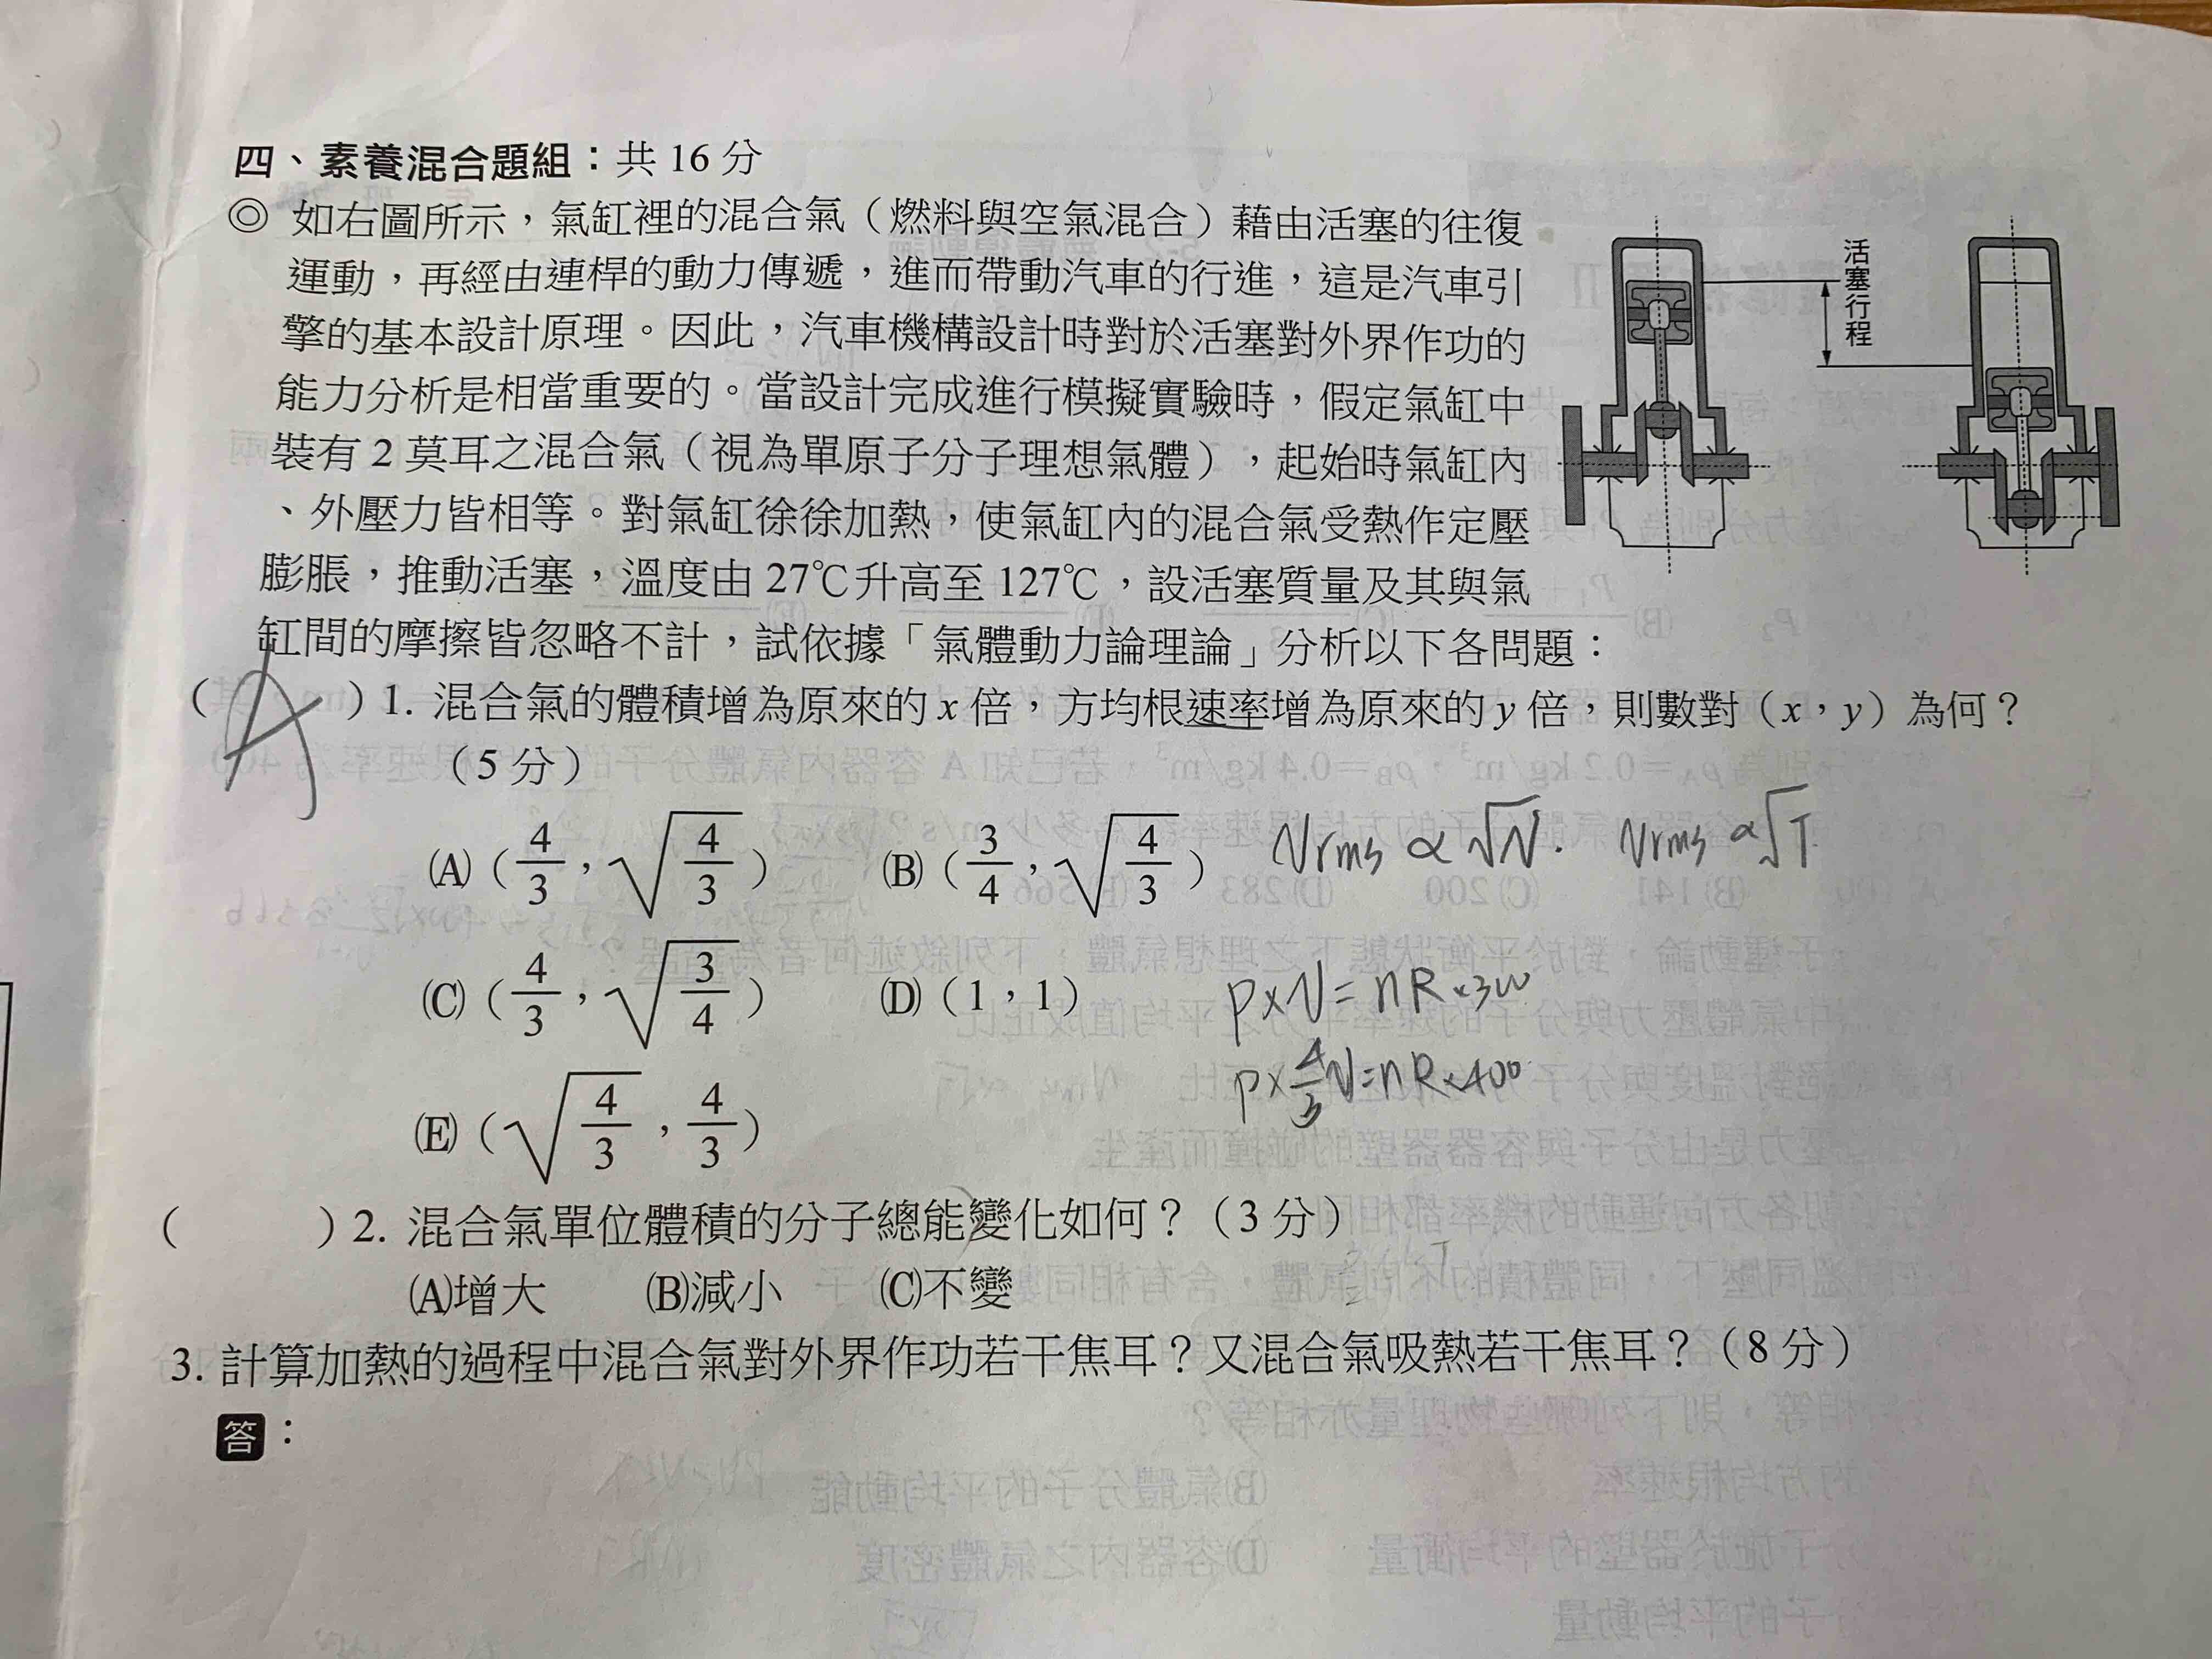 四、素養混合題組：共 16 分
◎ 如右圖所示，氣缸裡的混合氣（燃料與空氣混合）藉由活塞的往復
運動，再經由連桿的動力傳遞，進而帶動汽車的行進，這是汽車引
擎的基本設計原理。因此，汽車機構設計時對於活塞對外界作功的
能力分析是相當重要的。當設計完成進行模擬實驗時，假定氣缸中
裝有 2 莫耳之混合氣（視為單原子分子理想氣體），起始時氣缸內
、外壓力皆相等。對氣缸徐徐加熱，使氣缸內的混合氣受熱作定壓
膨脹，推動活塞，溫度由 27℃升高至 127℃，設活塞質量及其與氣
缸間的摩擦皆忽略不計，試依據「氣體動力論理論」分析以下各問題：
活塞行程
（ A ）1. 混合氣的體積增為原來的 x 倍，方均根速率增為原來的 y 倍，則數對（x，y）為何？
（5 分）
(A)（4/3，√(4/3)） (B)（3/4，√(4/3)） Vrms ∝ √V. Vrms ∝ √T
(C)（4/3，√(3/4)） (D)（1，1） P×V=nR×300
P×4/3V=nR×400
(E)（√(4/3)，4/3）
（ ）2. 混合氣單位體積的分子總能變化如何？（3 分）
(A)增大 (B)減小 (C)不變
3. 計算加熱的過程中混合氣對外界作功若干焦耳？又混合氣吸熱若干焦耳？（8 分）
答：